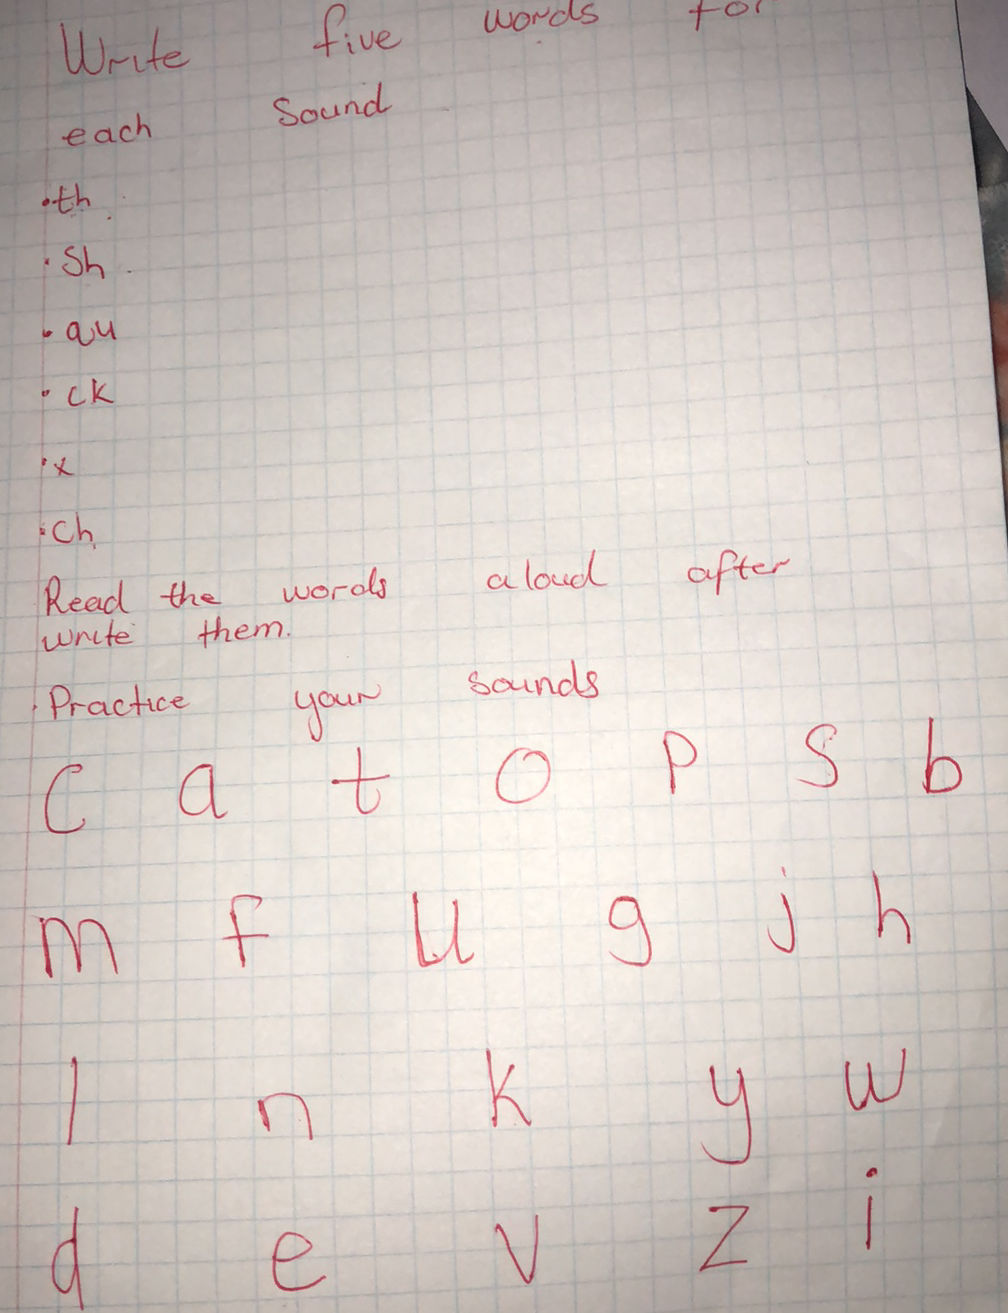 Write five words for
each Sound
•th
•Sh
•qu
•ck
•x
•Ch
Read the words aloud after
write them.
•Practice your sounds
C a t o p s b
m f u g j h
l n k y w
d e v z i